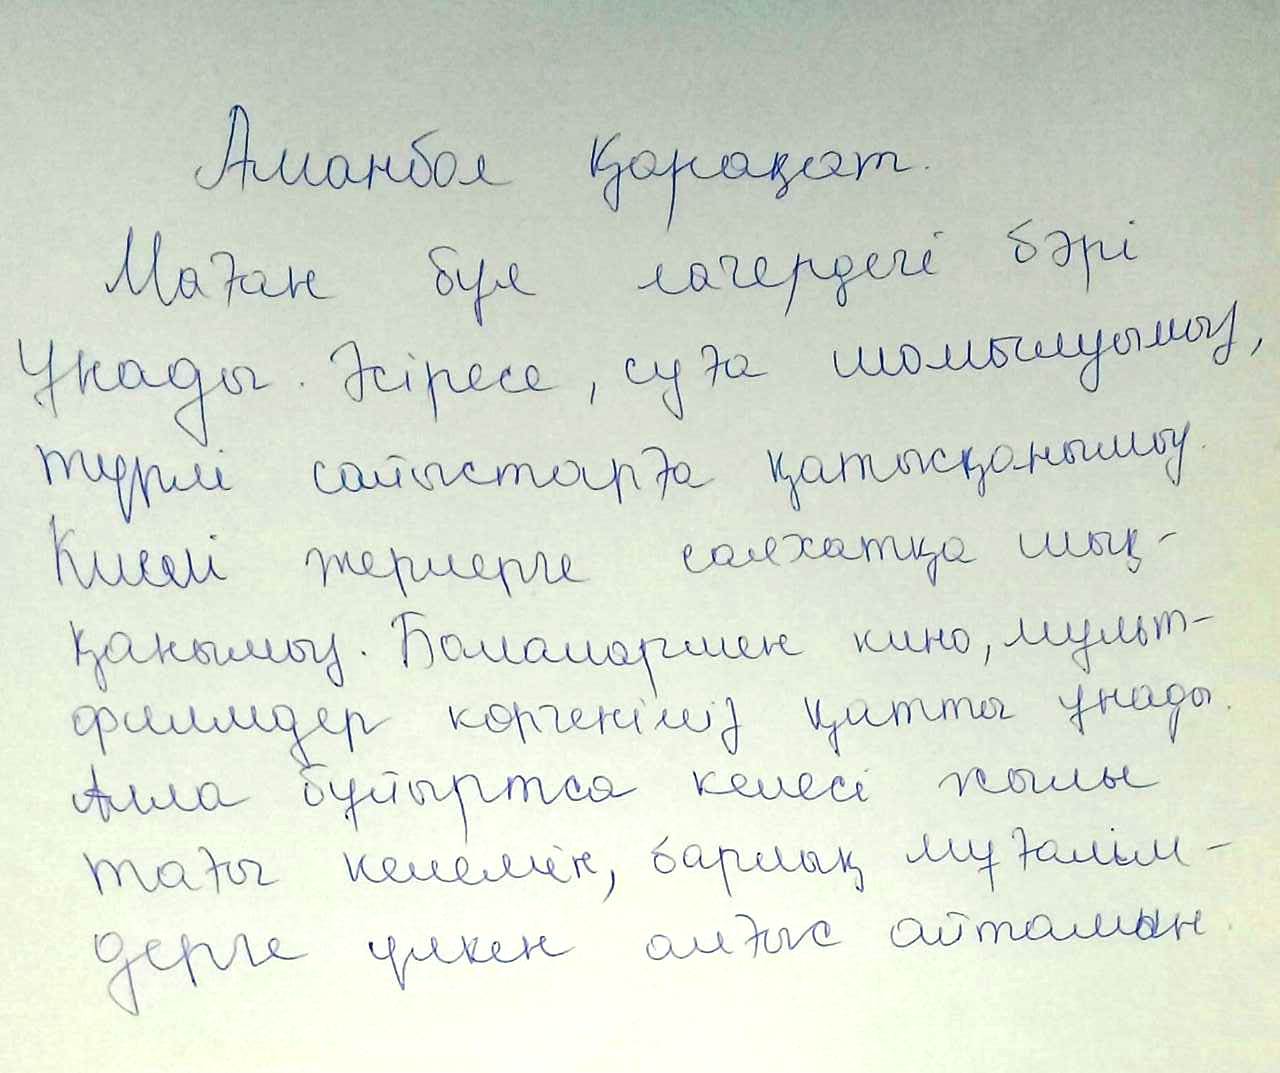 Аманбол Қарақат.
Маған бұл лагердегі бәрі
ұнады. Әсіресе, суға шомылуымыз,
түрлі сайыстарға қатысқанымыз.
Киелі жерлерге саяхатқа шық-
қанымыз. Балалармен кино, мульт-
филмдер көргеніміз қатты ұнады.
Алла бұйыртса келесі жылы
тағы келемін, барлық мұғалім-
дерге үлкен алғыс айтамын.